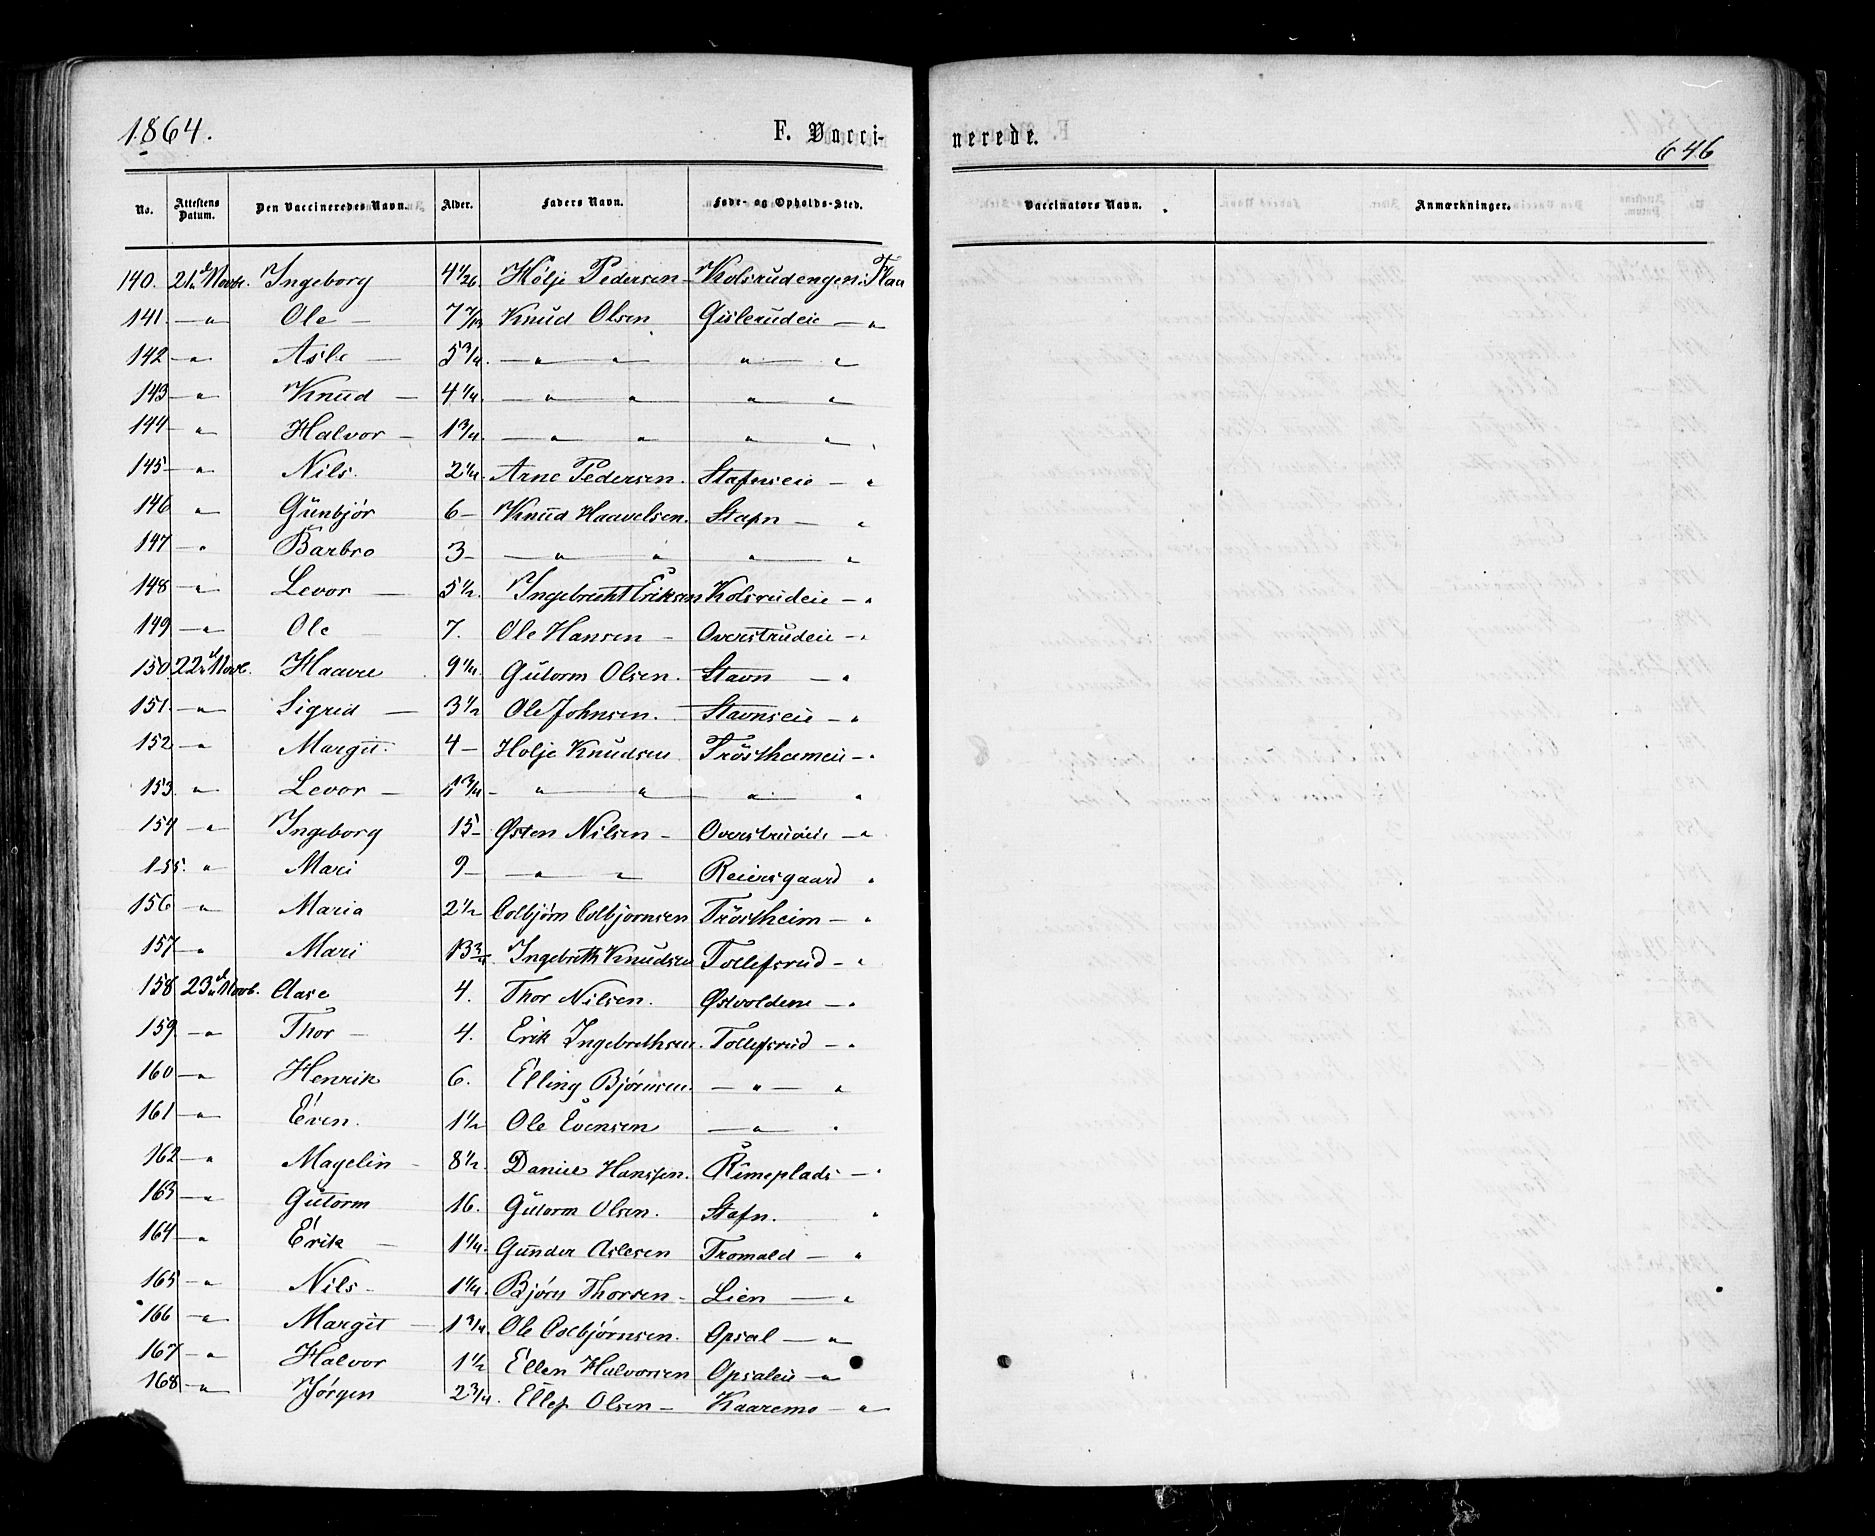 1864. F. Vacci-
nerede. 646
No. Attestens Datum. Den Vaccineredes Navn. Alder. Faders Navn. Føde- og Opholds-Sted. Vaccinators Navn. Anmærkninger.
140. 21d Novbr. Ingeborg 4 1/26. Holje Pedersen – Kolsrudengen i Flaa
141. — " Ole — 7 7/12 Knud Olsen Gislerudeie — "
142 — " Asle — 5 3/4. — " " " "
143 — " Knud — 4 1/4. — " " " "
144 — " Halvor — 1 3/4. — " " " "
145 — " Nils. 2 1/4. Arne Pedersen. Stafnseie — "
146 " Gunbjør 6 – Knud Haavelsen. Stafn — "
147 — " Barbro 3 – — " " " "
148 — " Levor — 5 1/2. Ingebrecht Eriksen Kolsrudeie — "
149 — " Ole — 7. Ole Hansen – Overstrudeie — "
150 22d Novb. Haavel 9 1/4. Gutorm Olsen. Stavn — "
151. — " Sigrid — 3 1/2 Ole Johnsen. Stavnseie — "
152 — " Margit. 4 – Holje Knudsen Trøstheimeie — "
153. — " Levor — 1 3/4 – " " " "
154 — " Ingeborg 15 – Østen Nilsen – Overstrudeie — "
155. " Mari 9 – — " " Reiersgaard "
156 — " Maria 2 1/2 Colbjørn Colbjørnsen Trøstheim — "
157 — " Mari 13 3/4 Ingebreth Knudsen Tollefsrud — "
158 23d Novb. Aase 4. Thor Nilsen. Østvoldene — "
159. — " Thor — 4. Erik Ingebrethsen. Tollefsrud — "
160 — " Henrik 6. Elling Bjørnsen. — " — "
161 — " Even. 1 1/2 Ole Evensen — " "
162 — " Magelin – 8 1/2. Daniel Hanssen. Rimeplads — "
163 — " Gutorm 16. Gutorm Olsen. Stafn. "
164 — " Erik — 1 1/4. Gunder Aslesen Tromald — "
165 — " Nils – 1 1/4. Bjørn Thorsen – Lien — "
166 — " Margit — 1 3/4. Ole Colbjørnsen. Opsal — "
167 — " Halvor 1 1/2 Ellen Halvorsen Opsaleie — "
168 — " Jørgen 2 3/4. Ellef Olsen – Kaaremo — "